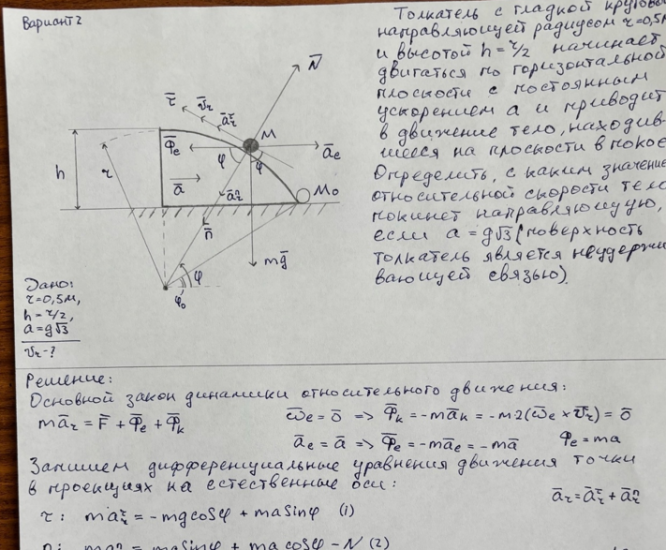 Вариант 2
Толкатель с гладкой круговой
направляющей радиусом r=0,5м
и высотой h = r/2 начинает
двигаться по горизонтальной
плоскости с постоянным
ускорением a и приводит
в движение тело, находив-
шееся на плоскости в покое.
Определить, с каким значением
относительной скорости тело
покинет направляющую,
если a = g√3 (поверхность
толкатель является неудержи-
вающей связью).
N̄
τ̄
v̄r
ār^τ
M
Φ̄e
φ
φ
āe
h
r
ā
ār^n
M₀
n̄
mḡ
φ
φ₀
Дано:
r=0,5м,
h=r/2,
a=g√3
vr-?
Решение:
Основной закон динамики относительного движения:
mār = F̄ + Φ̄e + Φ̄k
ω̄e = 0̄ => Φ̄k = -māk = -m2(ω̄e × v̄r) = 0̄
āe = ā => Φ̄e = -māe = -mā Φe = ma
Запишем дифференциальные уравнения движения точки
в проекциях на естественные оси:
ār = ār^τ + ār^n
τ: mar^τ = -mgcosφ + masinφ (1)